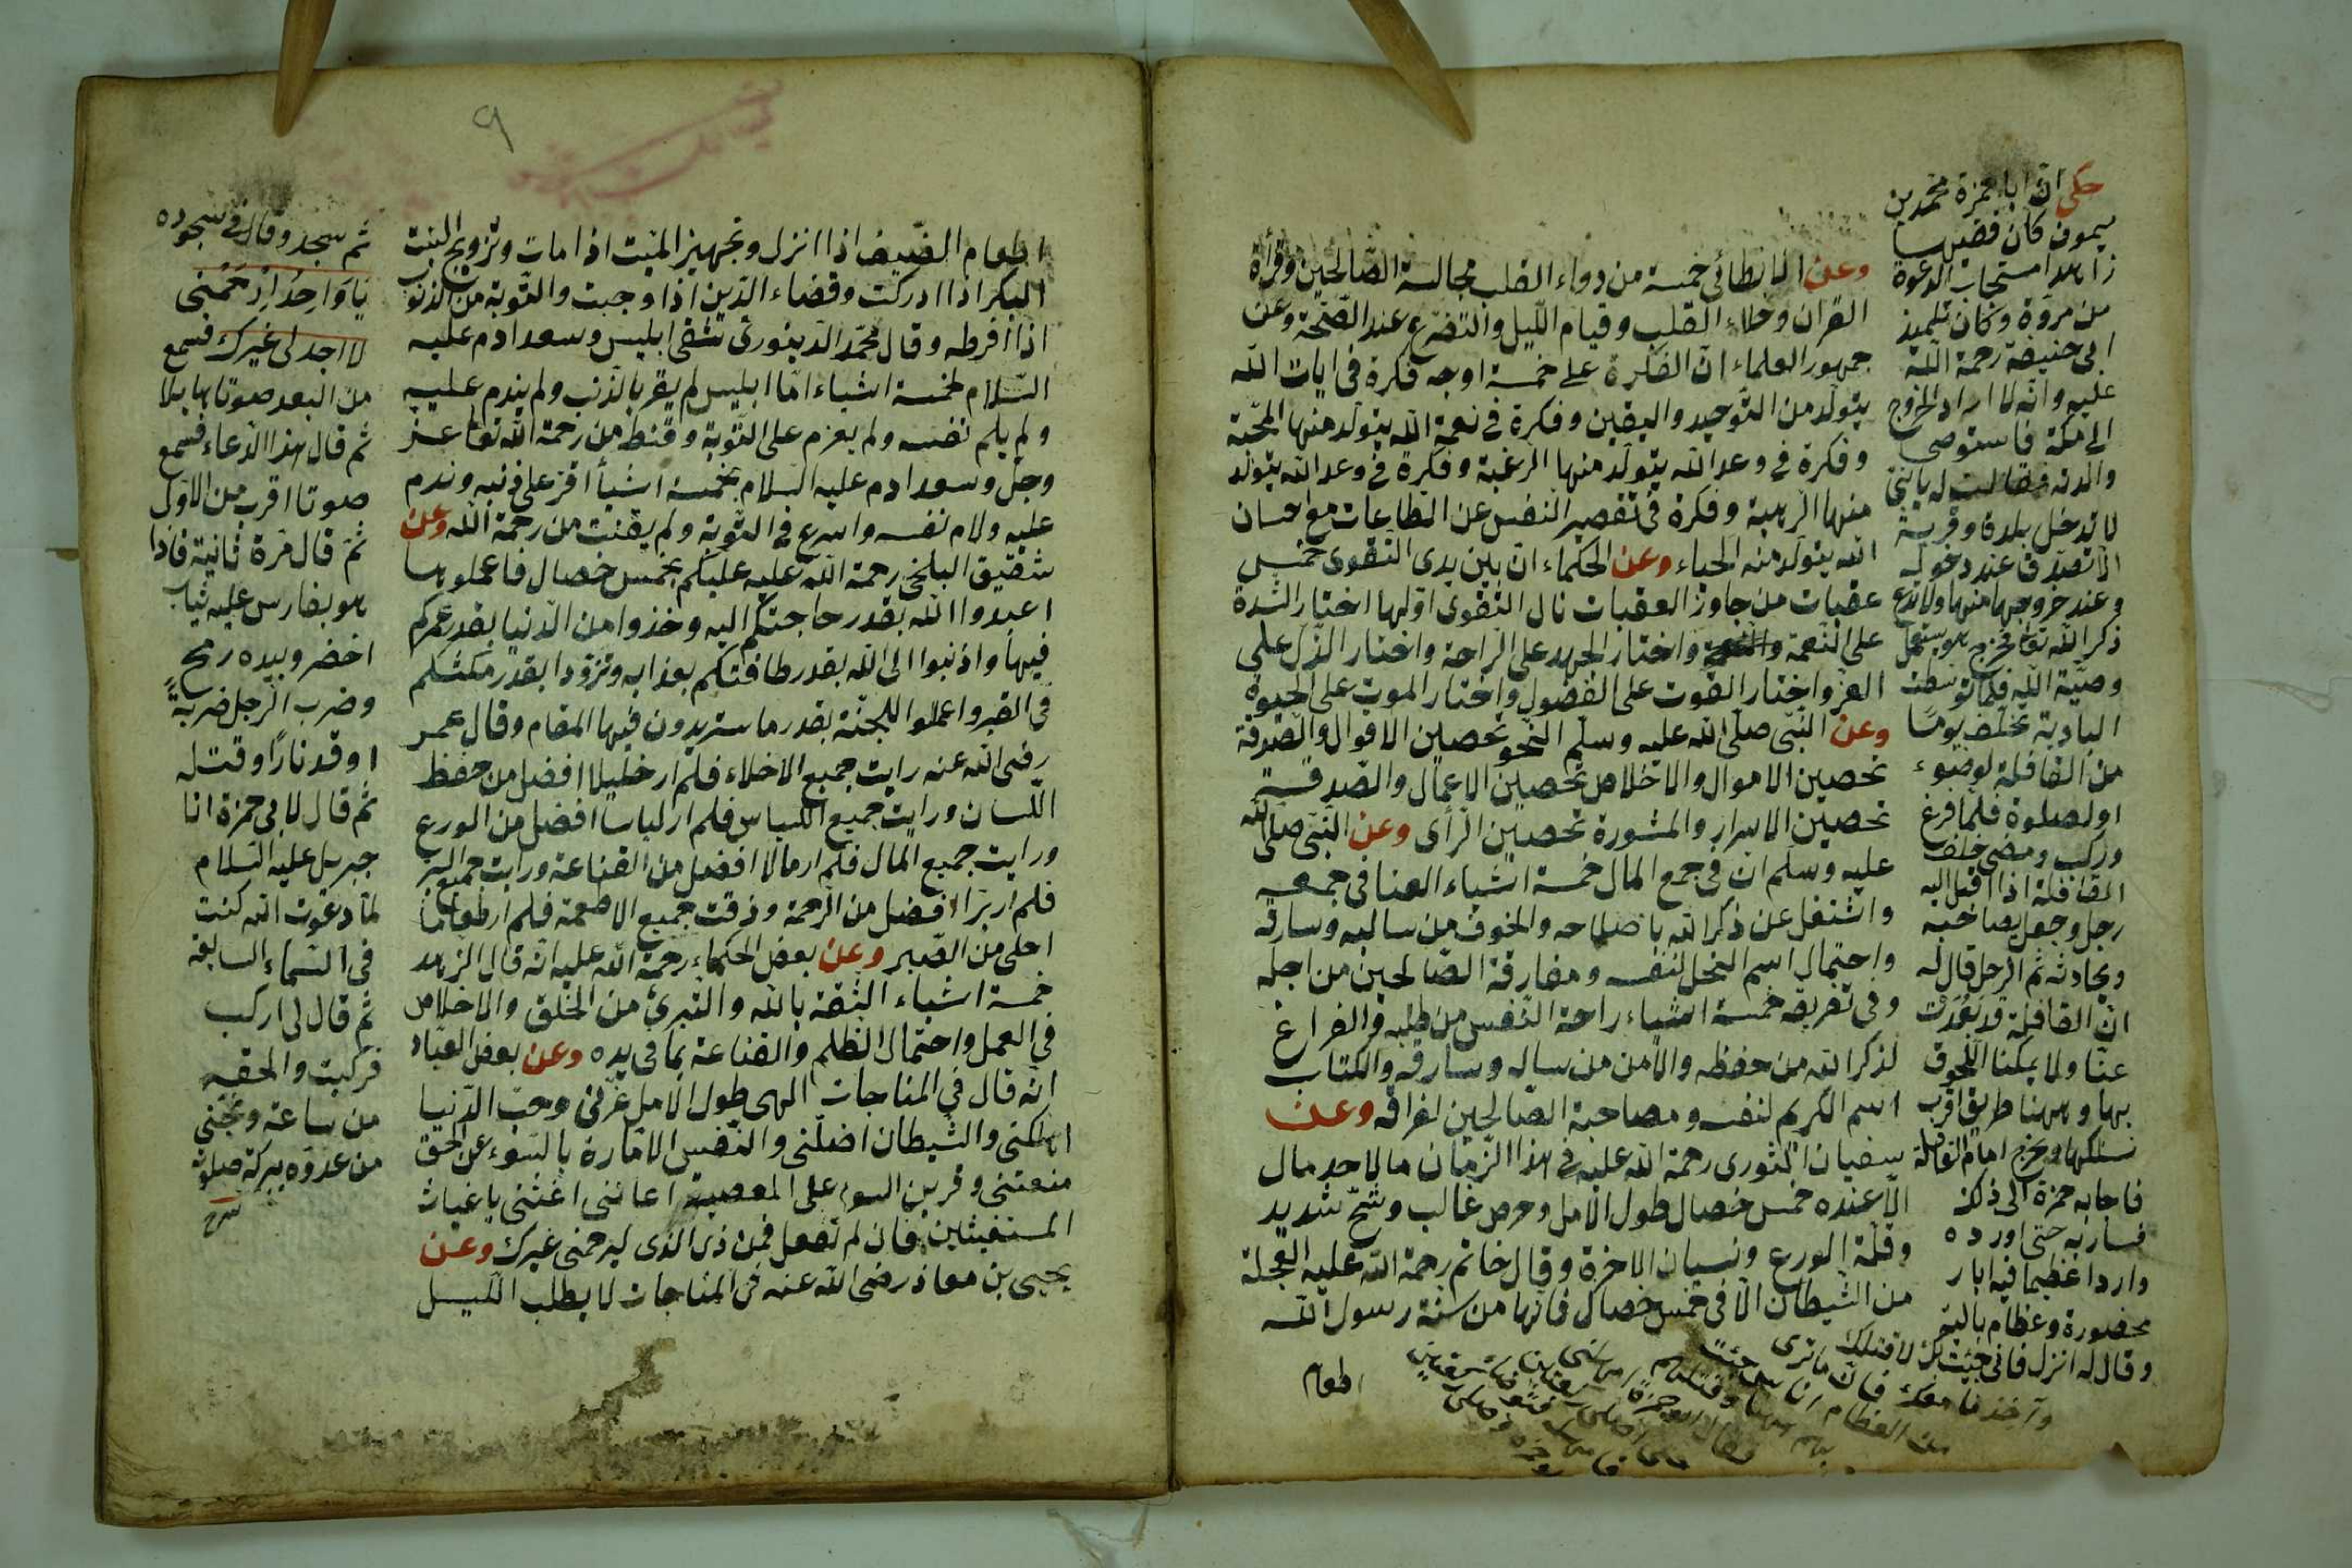 وعن الانطائى خمسة من دواء القلب مجالسة الصّالحين وقرأة
القران وخلاء القلب وقيام اللّيل والتضرّع عند الصّبحة وعن
جمهور العلماء انّ الفكرة على خمسة اوجه فكرة فى ايات الله
يتولّد من التّوحيد واليقين وفكرة فى نعمة الله يتولّد منها المحبّة
وفكرة فى وعد الله يتولّد منها الرغبة وفكرة فى وعد الله يتولّد
منها الرهبة وفكرة فى تقصير النفس عن الطاعات مع احسان
الله يتولّد منه الحياء وعن الحكماء ان بين يدى التقوى خمس
عقبات من جاوز العقبات نال التّقوى اوّلها اختار الشدة
على النّعمة واختار الجهد على الرّاحة واختار الذّل على
العز واختار القوت على الفضول واختار الموت على الحيوة
وعن النّبى صلّى الله عليه وسلّم النّجو تحصين الاقوال والصّدقة
تحصين الاموال والاخلاص تحصين الاعمال والصّدقة
تحصين الاسرار والمشورة تحصين الرّأى وعن النّبى صلّى الله
عليه وسلّم ان فى جمع المال خمسة اشياء العنا فى جمعه
واشتغل عن ذكر الله باصلاحه والخوف من سالبه وسارقه
واحتمال اسم البخل لنفسه ومفارقة الصّالحين من اجله
وفى تفريقه خمسة اشياء راحة النّفس من طلبه والفراغ
لذكر الله من حفظه والامن من سالبه وسارقه واكتساب
اسم الكريم لنفسه ومصاحبة الصّالحين لفراقه وعن
سفيان الثورى رحمة الله عليه فى هذا الزّمان ما لاحد مال
الّا عنده خمس خصال طول الامل وحرص غالب وشحّ شديد
وقلّة الورع ونسيان الاخرة وقال حاتم رحمة الله عليه العجلة
من الشّيطان الّا فى خمس خصال فانّها من سنّة رسول الله
اطعام
حكى انّ ابا حمزة محمّد بن
ميمون كان فقيها
زاهدا مستجاب الدعوة
من مروة وكان تلميذ
ابى حنيفة رحمة الله
عليه وانّه لا اراد الخروج
الى مكّة فاستوصى
والدته فقالت له يا بنىّ
لا تدخل بلدة وقرية
الّا تصدّق عند دخوله
وعند خروجها منها ولا تدع
ذكر الله تعا فخرج هو يستعمل
وصيّة الله فلمّا توسّطت
البادية تخلّف يومًا
من القافلة لوضوء
او لصلوة فلمّا فرغ
وركب ومضى خلف
القافلة اذا اقبل اليه
رجل وجعل يصاحبه
ويحادثه ثم الرجل قال له
انّ القافلة قد بعُدت
عنّا ولا يمكننا اللّحوق
بها وههنا طريق اقرب
نسلكها ونخرج امام القافلة
فاجابه حمزة الى ذلك
فسار به حتى اورده
واردا عظيما فيه ابار
محفورة وعظام بالية
وقال له انزل فانى جئت بك لاقتلك
وآخذ ما معك فان ما ترى
من العظام
اطعام الضّيف اذا انزل وتجهيز الميّت اذا مات وتزويج البنت
البكر اذا ادركت وقضاء الدّين اذا وجبت والتّوبة من الذّنوب
اذا افرطه وقال محمّد الدّينورىّ شقى ابليس وسعد ادم عليه
السّلام لخمسة اشياء امّا ابليس لم يقر بالذّنب ولم يندم عليه
ولم يلم نفسه ولم يعزم على التّوبة وقنط من رحمة الله تعا عز
وجلّ وسعد ادم عليه السلام بخمسة اشيأ اقرّ على ذنبه وندم
عليه ولام نفسه واسرع فى التّوبة ولم يقنت من رحمة الله وعن
شقيق البلخى رحمة الله عليه عليكم بخمس خصال فاعملوبها
اعبدوا الله بقدر حاجتكم اليه وخذوا من الدّنيا بقدر عمركم
فيها واذنبوا الى الله بقدر طاقتكم بعذابه وتزوّدا بقدر مكثكم
فى القبر واعملوا للجنّة بقدر ما ستريدون فيها المقام وقال عمر
رضى الله عنه رايت جميع الاخلاء فلم ار خليلا افضل من حفظ
اللّسان ورايت جميع اللباس فلم ار لباسا افضل من الورع
ورايت جميع المال فلم ار مالا افضل من القناعة ورايت جميع البر
فلم ار برّا افضل من الرّحمة وذقت جميع الاطعمة فلم ار طعاما
احلى من الصّبر وعن بعض الحكماء رحمة الله عليه انّه قال الزّهد
خمسة اشياء الثّقة بالله والتبرئ من الخلق والاخلاص
فى العمل واحتمال الظلم والقناعة بما فى يده وعن بعض العبّاد
انّه قال فى المناجات الهى طول الامل غرّنى وحبّ الدّنيا
اهلكنى والشّيطان اضلّنى والنّفس الامّارة بالسّوء عن الحق
منعتنى وقرين السوء على المعصية اعاننى اغثنى يا غياث
المستغيثين فان لم تفعل فمن ذى الذى ليرحمنى غيرك وعن
يحيى بن معاذ رضى الله عنه فى المناجات لا يطلب اللّيل
ثم سجد وقال فى سجوده
يا واحدا ارحمنى
لا اجد لى غيرك فسمع
من البعد صوتا هايلا
ثم قال هذا الدّعاء فسمع
صوتا اقرب من الاوّل
ثمّ قال مرّة ثانية فاذا
هو بفارس عليه ثياب
اخضر وبيده رمح
وضرب الرّجل ضربةً
اوقد نارًا وقتله
ثم قال لابى حمزة انا
جبريل عليه السّلام
لمّا دعوت الله كنت
فى السّماء السابعة
ثم قال لى اركب
فركبت والحقه
من ساعة ونجّنى
من عدوّه ببركة صلوة
شرح
٩